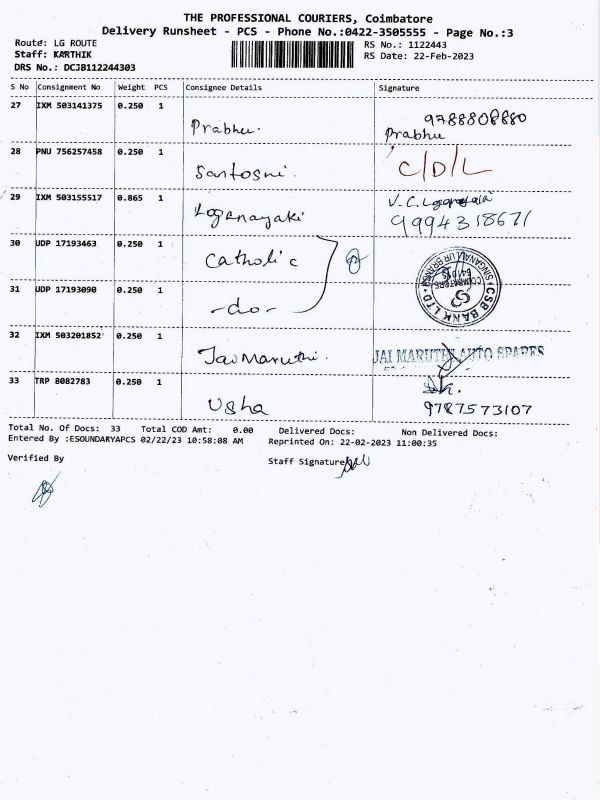 THE PROFESSIONAL COURIERS, Coimbatore
Delivery Runsheet - PCS - Phone No.:0422-3505555 - Page No.:3
Route: LG ROUTE
Staff: KARTHIK
DRS No.: DCJB112244303
RS No.: 1122443
RS Date: 22-Feb-2023
S No Consignment No Weight PCS Consignee Details Signature
27 IXM 503141375 0.250 1 Prabhu. 9788808880
Prabhu
28 PNU 756257458 0.250 1 Santosni. C/D/L
29 IXM 503155517 0.865 1 Loganayaki V.C. 
9994318671
30 UDP 17193463 0.250 1 Catholic
31 UDP 17193090 0.250 1 -do-
CSB BANK LTD
SINGANALLUR BRANCH
COIMBATORE
32 IXM 503201852 0.250 1 Jai Maruthi. JAI MARUTHI AUTO SPARES
33 TRP 8082783 0.250 1 Usha
9787573107
Total No. Of Docs: 33 Total COD Amt: 0.00 Delivered Docs: Non Delivered Docs:
Entered By :ESOUNDARYAPCS 02/22/23 10:58:08 AM Reprinted On: 22-02-2023 11:00:35
Verified By
Staff Signature